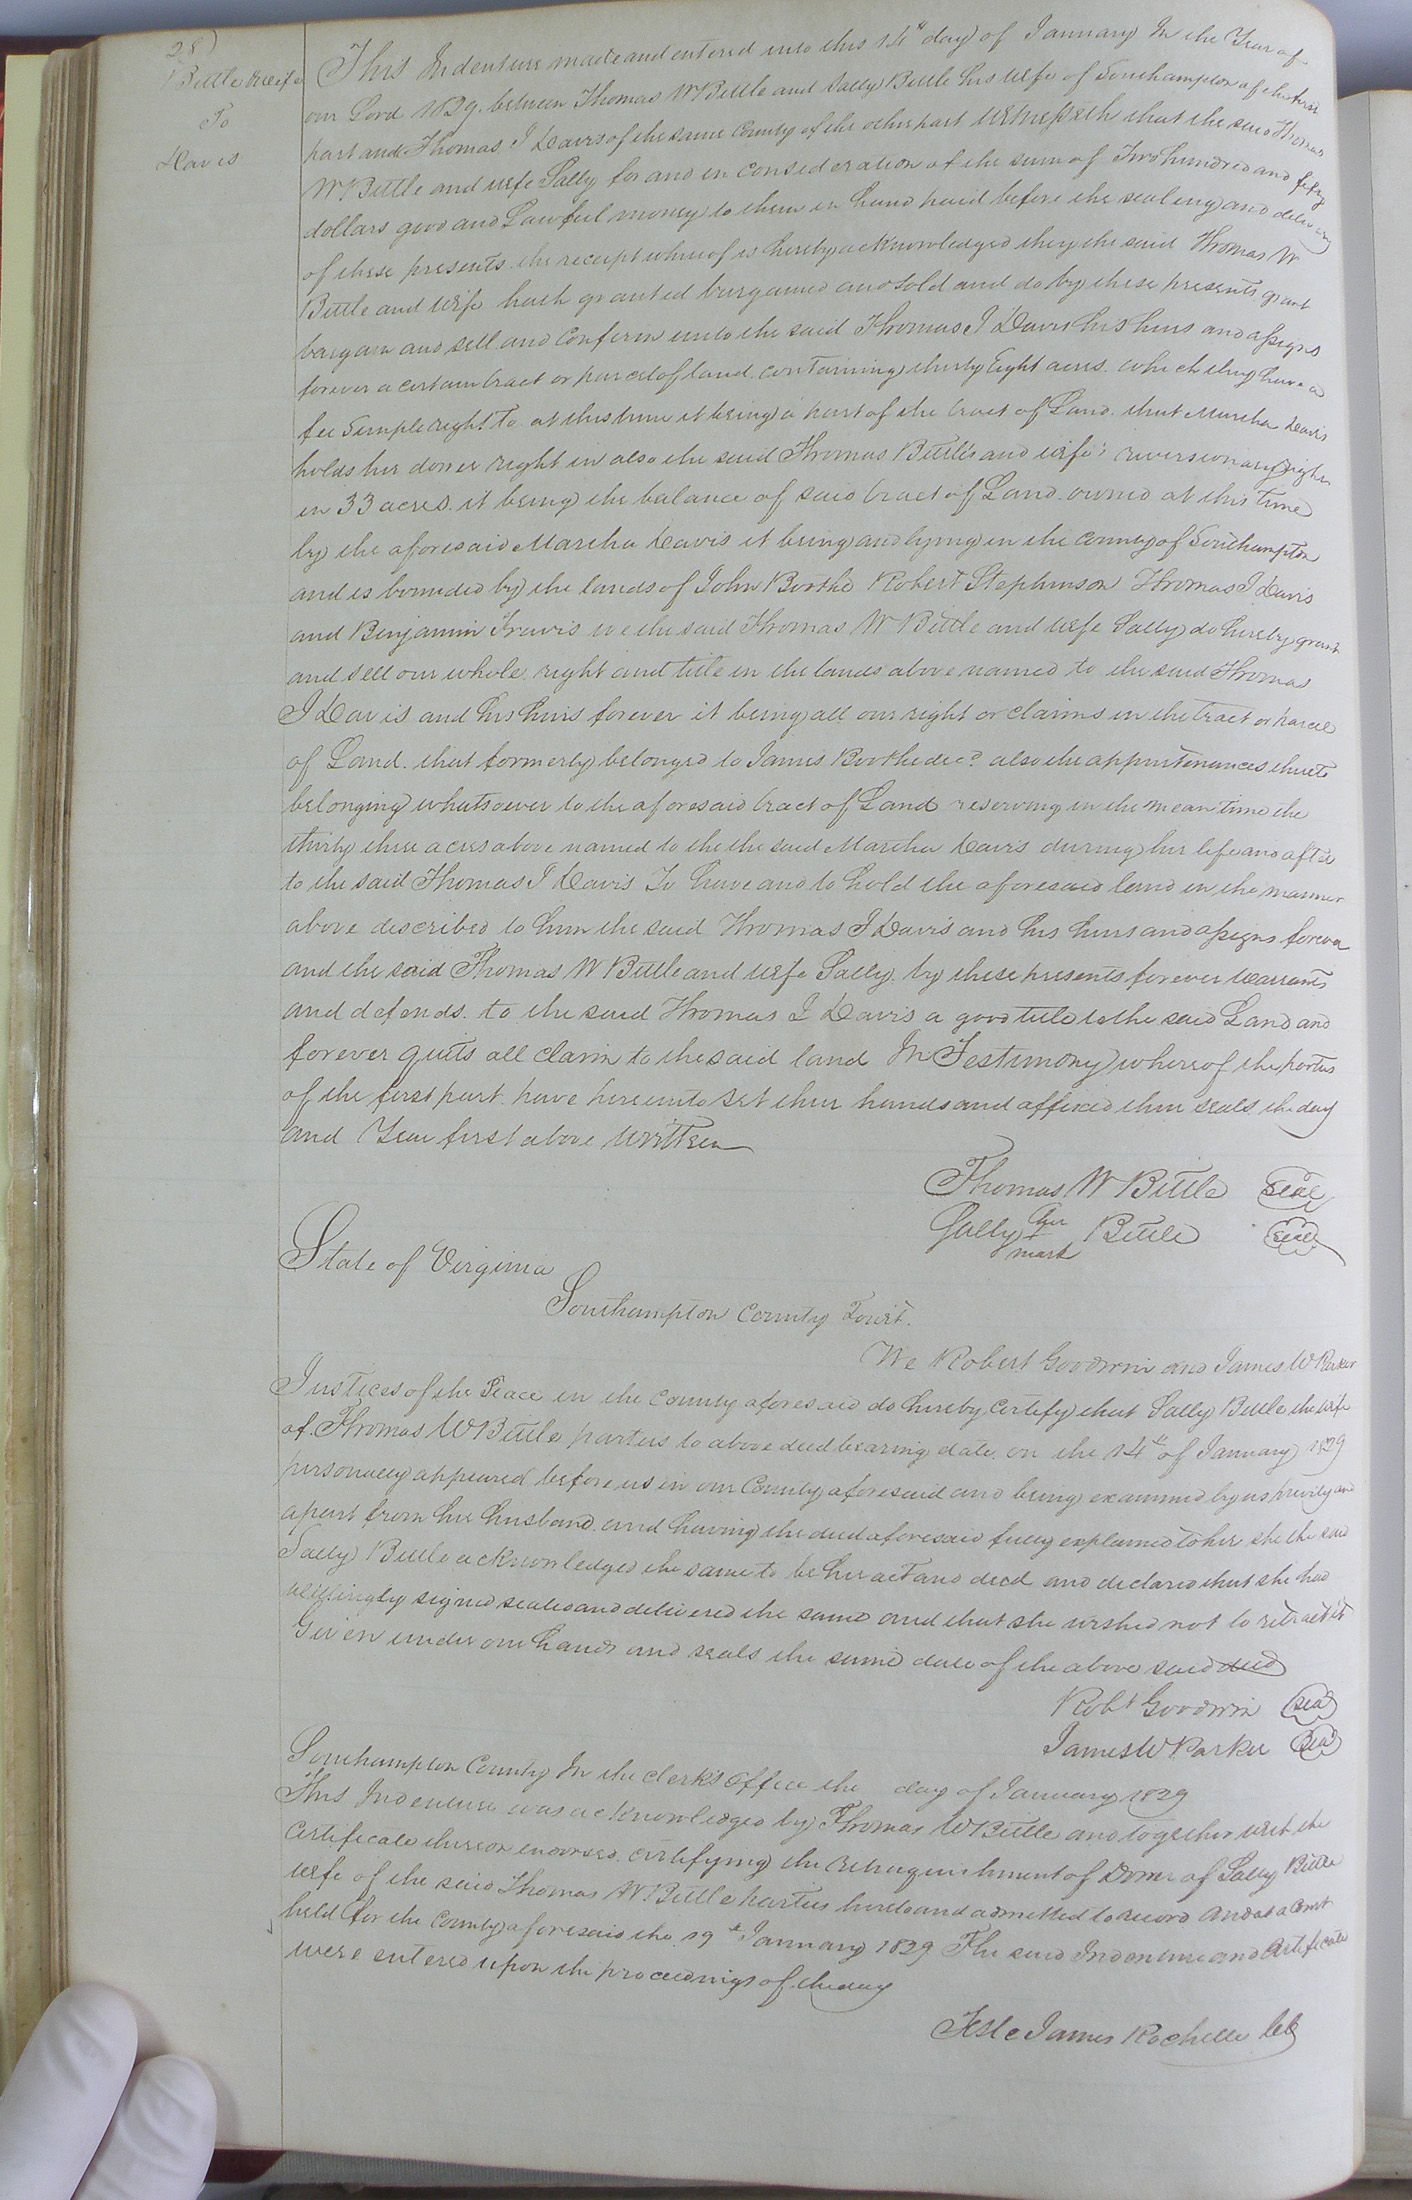 28)
Bittle & wife
To
Davis
This Indenture made and entered into this 14th day of January In the Year of
our Lord 1829. between Thomas W Bittle and Sally Bittle his wife of Southampton of the first
part and Thomas. J Davis of the same County of the other part Witnesseth that the said Thomas
W Bittle and wife Sally for and in consideration of the sum of Two hundred and fifty
dollars good and Lawful money to them in hand paid before the sealing and delivery
of these presents the receipt whereof is hereby acknowledged they the said Thomas W
Bittle and wife hath granted bargained and sold and do by these presents grant
bargain and sell and confirm unto the said Thomas J Davis his heirs and assigns
forever a certain tract or parcel of land. containing thirty Eight acres. which they have a
fee Simple right to at this time it being a part of the tract of Land. that Martha Davis
holds her dower right in also the said Thomas Bittle's and wife's reversionary right
in 33 acres. it being the balance of said tract of Land. owned at this time
by the aforesaid Martha Davis it being and lying in the County of Southampton
and is bounded by the lands of John Boothe Robert Stephenson Thomas J Davis
and Benjamin Travis we the said Thomas W Bittle and wife Sally do hereby grant
and sell our whole. right and title in the lands above named to the said Thomas
J Davis and his heirs forever it being all our right or claims in the tract or parcel
of Land. that formerly belonged to James Boothe decd. also the appurtenances thereto
belonging whatsoever to the aforesaid tract of Land reserving in the mean time the
thirty three acres above named to the the said Martha Davis during her life and after
to the said Thomas J Davis To have and to hold the aforesaid land in the manner
above described to him the said Thomas J Davis and his heirs and assigns forever
and the said Thomas W Bittle and wife Sally. by these presents forever warrants
and defends. to the said Thomas J Davis a good title to the said Land and
forever quits all claim to the said land In Testimony whereof the parties
of the first part have hereunto set their hands and affixed their seals the day
and Year first above written
Thomas W Bittle seal
Sally her Bittle seal
mark
State of Virginia
Southampton County Towit.
We Robert Goodwin and James W Parker
Justices of the Peace in the County aforesaid do hereby certify that Sally Bittle the wife
of. Thomas W Bittle parties to above deed bearing date on the 14th of January 1829
personally appeared before us in our County aforesaid and being examined by us privily and
apart from her husband and having the deed aforesaid fully explained to her she the said
Sally Bittle acknowledged the same to be her act and deed and declared that she had
willingly signed sealed and delivered the same and that she wished not to retract it
Given under our hands and seals the same date of the above said deed
Robt Goodwin seal
James W Parker seal
Southampton County In the clerk's office the day of January 1829
This Indenture was acknowledged by Thomas W Bittle and together with the
Certificate thereon endorsed. certifying the relinquishment of Dower of Sally Bittle
wife of the said Thomas W. Bittle parties hereto and admitted to record And at a Court
held for the County aforesaid the 19th January 1829 The said Indenture and Certificate
were entered upon the proceedings of the day
Teste James Rochelle